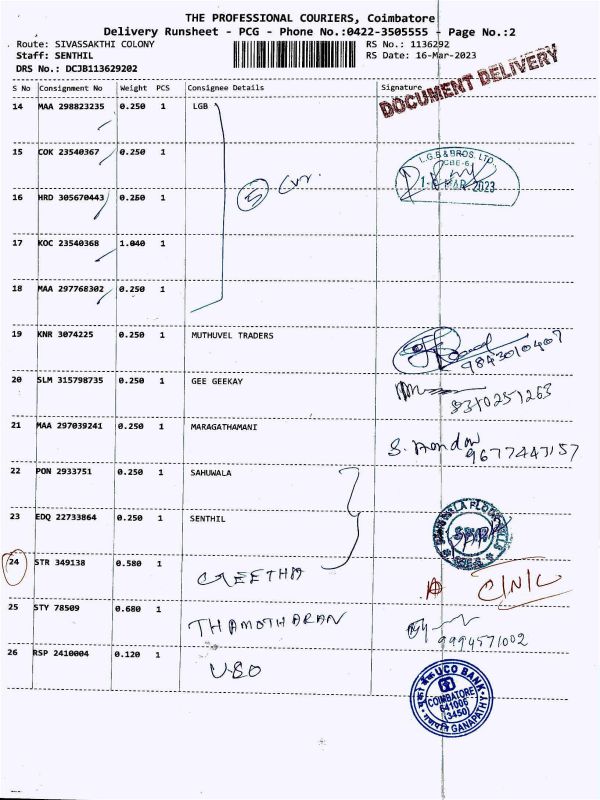 THE PROFESSIONAL COURIERS, Coimbatore
Delivery Runsheet - PCG - Phone No.:0422-3505555 - Page No.:2
Route: SIVASSAKTHI COLONY RS No.: 1136292
Staff: SENTHIL RS Date: 16-Mar-2023
DRS No.: DCJB113629202
DOCUMENT DELIVERY
S No Consignment No Weight PCS Consignee Details Signature
14 MAA 298823235 0.250 1 LGB
15 COK 23540367 0.250 1
L.G.B & BROS. LTD.
CBE-6
MAR 2023
16 HRD 305670443 0.250 1
5
17 KOC 23540368 1.040 1
18 MAA 297768302 0.250 1
19 KNR 3074225 0.250 1 MUTHUVEL TRADERS
9843010407
20 SLM 315798735 0.250 1 GEE GEEKAY
8310251263
21 MAA 297039241 0.250 1 MARAGATHAMANI
9677443157
22 PON 2933751 0.250 1 SAHUWALA
23 EDQ 22733864 0.250 1 SENTHIL
24 STR 349138 0.580 1 GEETHA
25 STY 78509 0.680 1 THAMOTHARAN
9994571002
26 RSP 2410004 0.120 1
UCO BANK
COIMBATORE
641006
(3450)
GANAPATHY